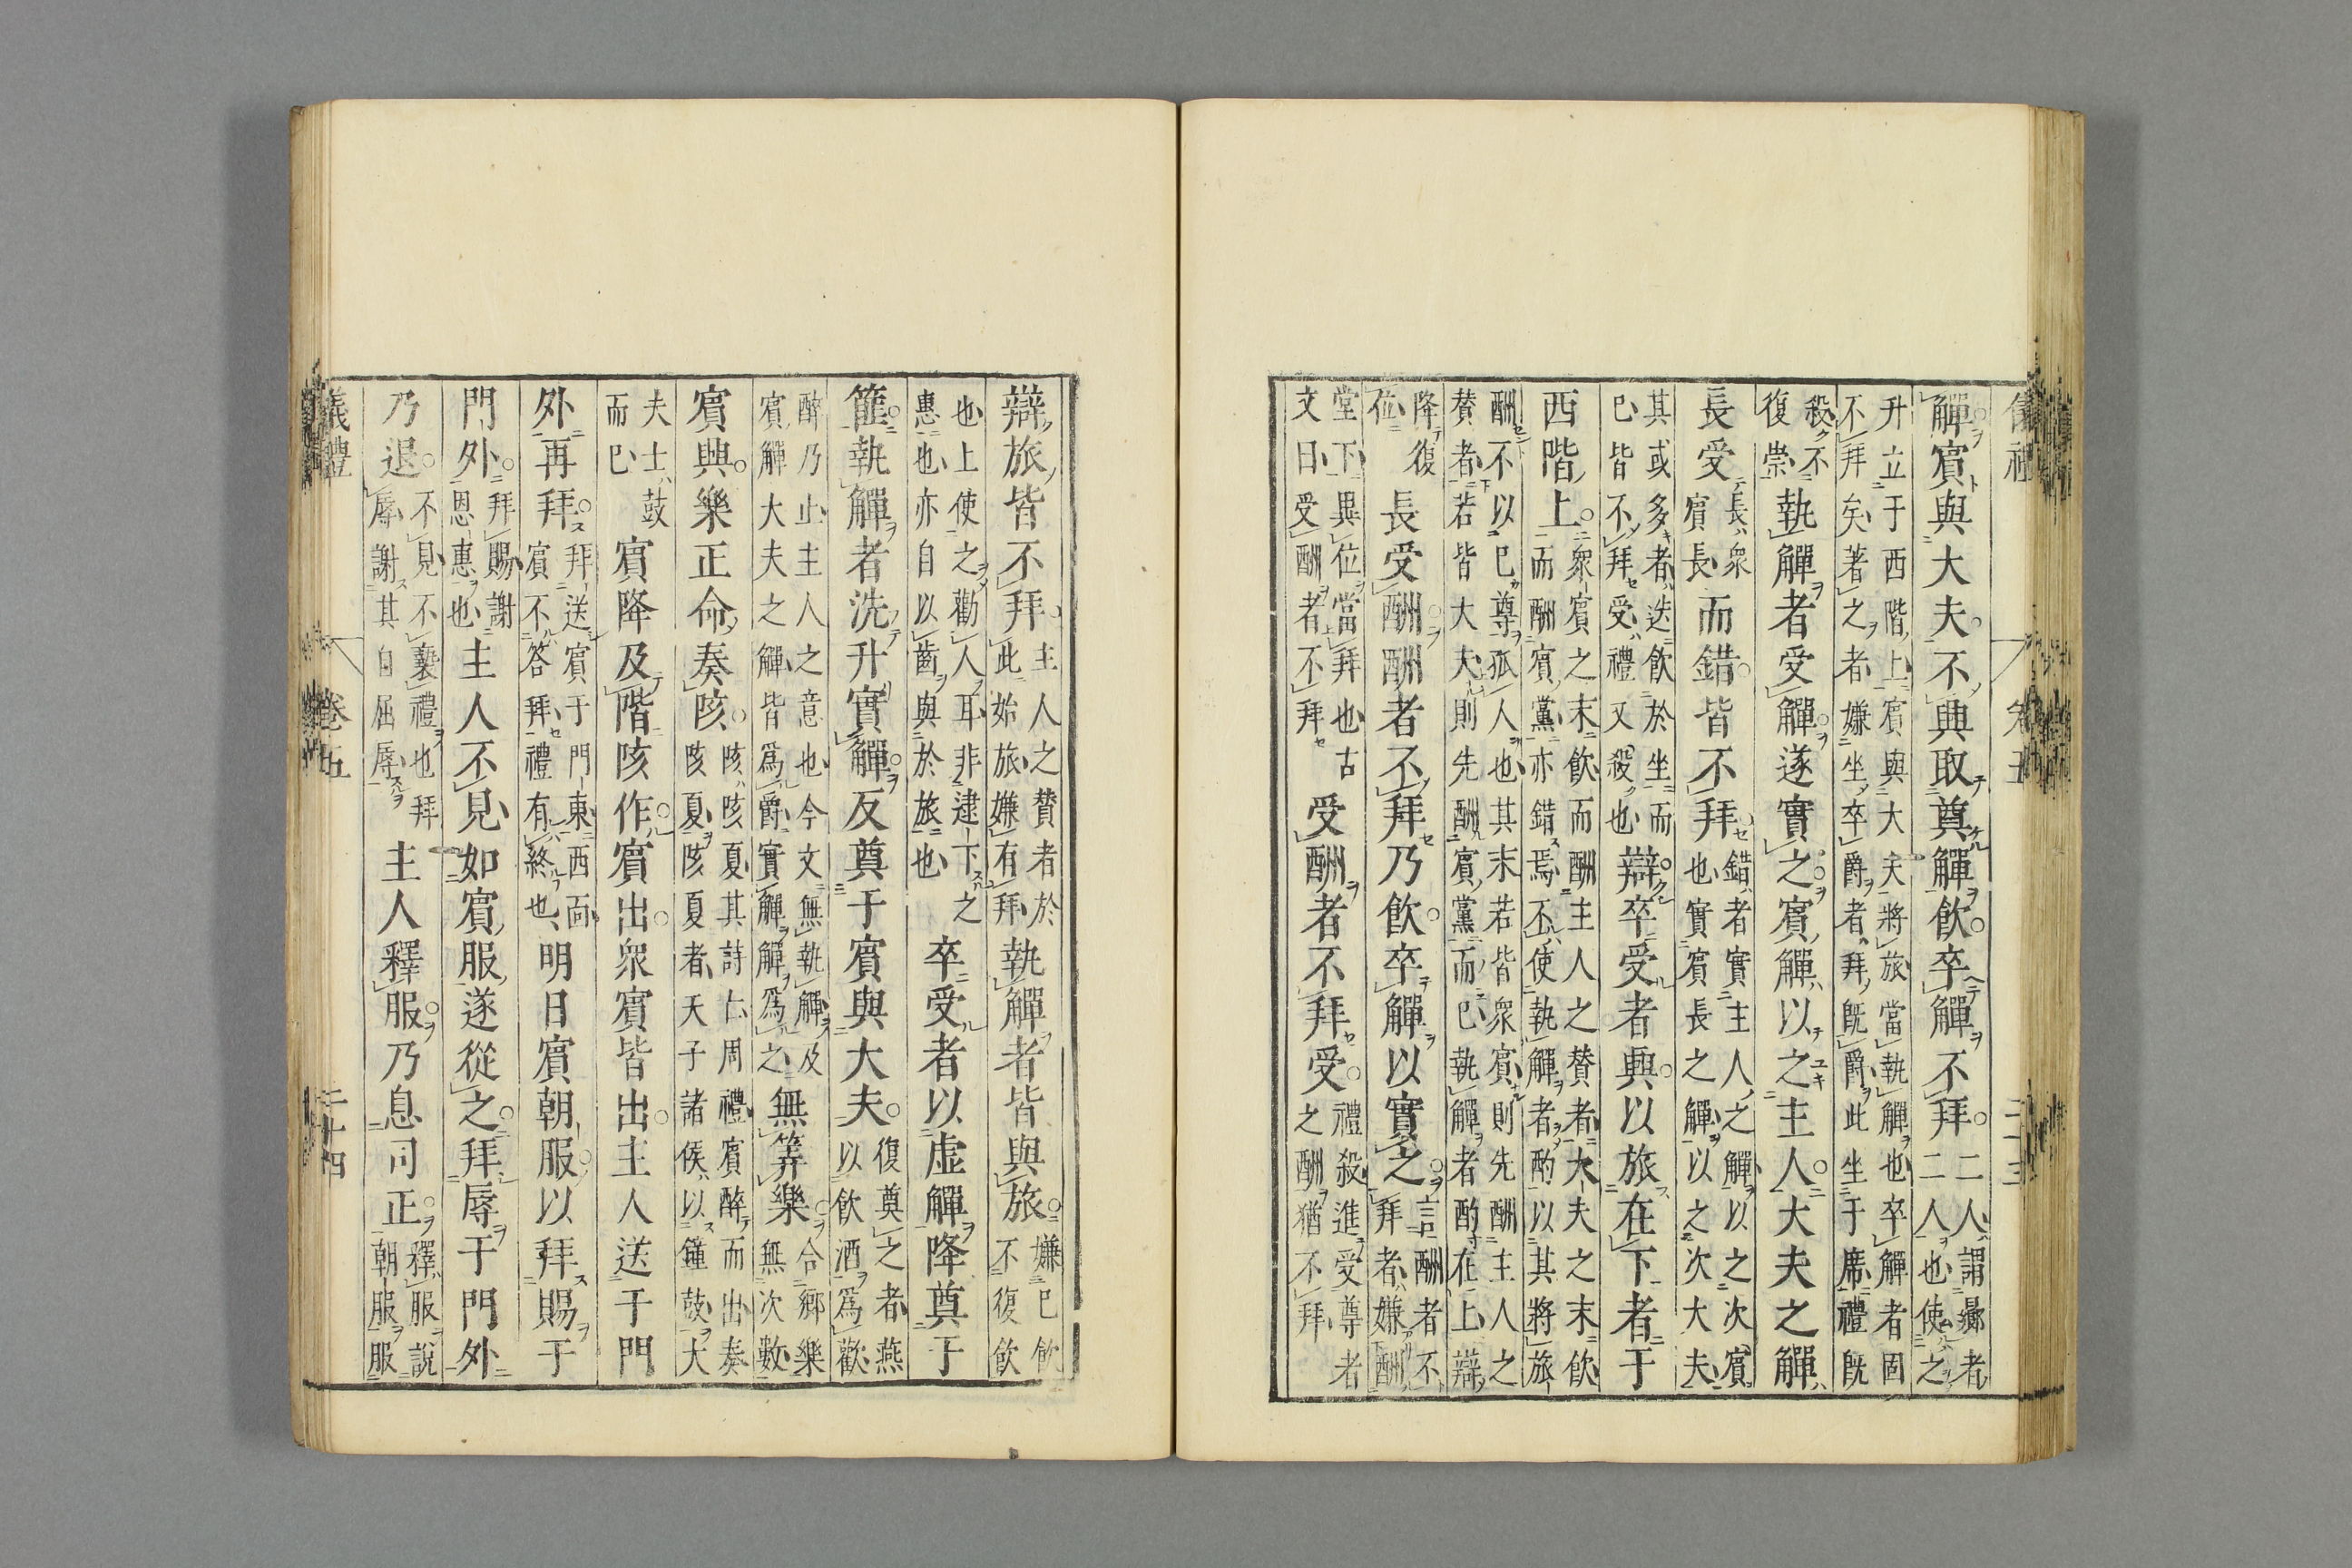 觶賓與大夫不興取奠觶飲卒觶不拜二人謂曏者二人也使之
升立于西階上賓與大夫將旅當執觶也卒觶者固
不拜矣著之者嫌坐卒爵者拜既爵此坐于席禮既
殺不復崇執觶者受觶遂實之賓觶以之主人大夫之觶
長受長衆賓長而錯皆不拜錯者實主人之觶以之次賓也實賓長之觶以之次大夫
其或多者迭飲於坐而已皆不拜受禮又殺也辯卒受者興以旅在下者于
西階上衆賓之末飲而酬主人之贊者大夫之末飲而酬賓黨亦錯焉不使執觶者酌以其將旅
酬不以已尊孤人也其末若皆衆賓則先酬主人之
贊者若皆大夫則先酬賓黨而已執觶者酌在上辯
降復位長受酬酬者不拜乃飲卒觶以實之言酬者不拜者嫌酬
堂下異位當拜也古文曰受酬者不拜受酬者不拜受禮殺進受尊者之酬猶不拜
辯旅皆不拜主人之贊者於此始旅嫌有拜執觶者皆與旅嫌已飲不復飲
也上使之勸人耳非逮下之惠也亦自以齒與於旅也卒受者以虛觶降奠于
篚執觶者洗升實觶反奠于賓與大夫復奠之者燕以飲酒爲歡
醉乃止主人之意也今文無執觶及賓觶大夫之觶皆爲爵實觶觶爲之無筭樂合鄉樂無次數
賓興樂正命奏陔陔陔夏其詩亡周禮賓醉而出奏陔夏陔夏者天子諸侯以鐘鼓大
夫士鼓而已賓降及階陔作賓出衆賓皆出主人送于門
外再拜拜送賓于門東西面賓不答拜禮有終也明日賓朝服以拜賜于
門外拜賜謝恩惠也主人不見如賓服遂從之拜辱于門外
乃退不見不褻禮也拜辱謝其自屈辱主人釋服乃息司正釋服說朝服服
儀禮 卷五 二十四